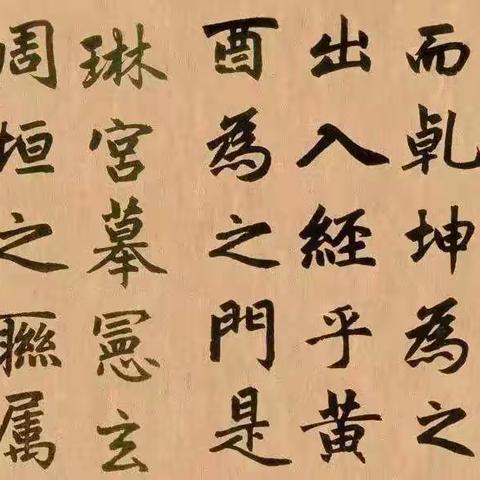 而乹坤為之
出入經乎黃
酉為之門是
琳宮摹憲玄
周垣之聯属